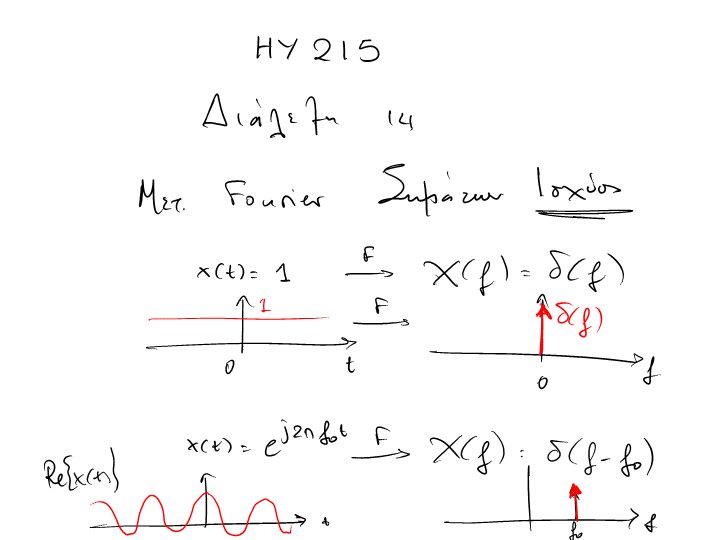 HY 215
Διάλεξη 14
Μετ. Fourier Σημάτων Ισχύος
x(t) = 1 F X(f) = δ(f)
1 F δ(f)
0 t 0 f
x(t) = e^{j2πf₀t} F X(f) = δ(f-f₀)
Re{x(t)}
t f₀ f